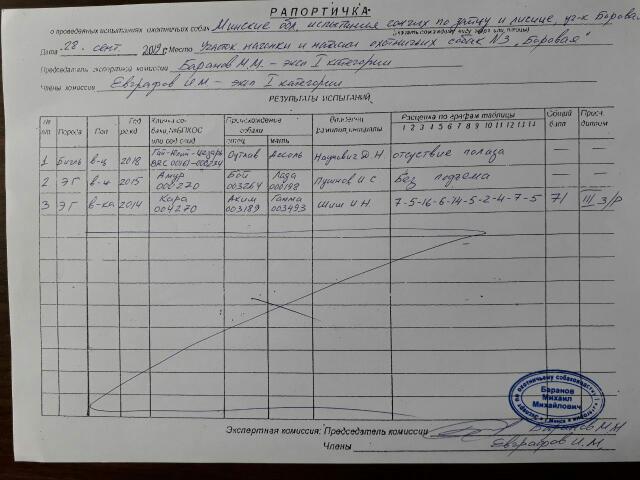 РАПОРТИЧКА
о проведенных испытаниях охотничьих собак Минские обл. испытания гончих по зайцу и лисице, уг-к Боровая
Дата 28. сент. 2019 г. Место Участок нагонки и натаски охотничьих собак №3 "Боровая"
Председатель экспертной комиссии Баранов М.М. – эксп I категории
Члены комиссии Евграфов И.М – эксп I категории
РЕЗУЛЬТАТЫ ИСПЫТАНИЙ
№ п/п Порода Пол Год рожд Кличка собаки, №ВПКОС или род.свид Происхождение собаки отец мать Владелец фамилия, инициалы Расценка по графам таблицы 1 2 3 4 5 6 7 8 9 10 11 12 13 14 Общий балл Прис. диплом
1 Бигль в-ц 2018 Ассоль Наумович Д Н. отсуствие полаза — —
2 ЭГ в-ц 2015 Амур 000270 Бой 003264 Лада 000198 И С Без подъема — —
3 ЭГ в-ка 2014 Кара 004270 Аким 003189 Гамма 003493 Шиш И Н. 7-5-16-6-14-5-2-4-7-5 71 III з/р
Эксперт по охотничьему собаководству
г.Минск
Баранов
Михаил
Михайлович
Экспертная комиссия: Председатель комиссии Баранов М М
Члены Евграфов И.М.